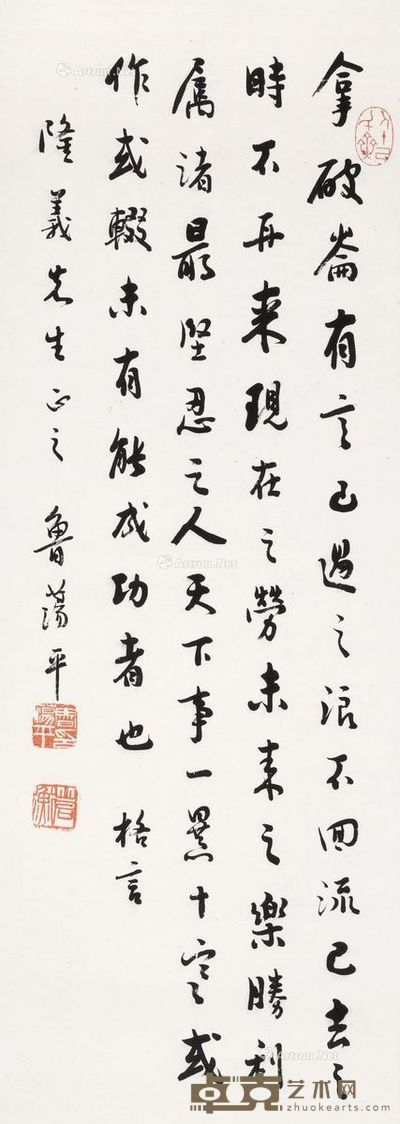 拿破崙有言已過之浪不回流已去之
時不再來現在之勞未來之樂勝利
屬諸最堅忍之人天下事一暴十寒或
作或輟未有能成功者也 格言
隆義先生正之 魯蕩平
Artron.Net
Artron.Net
Artron.Net
卓克艺术网
zhuokearts.com